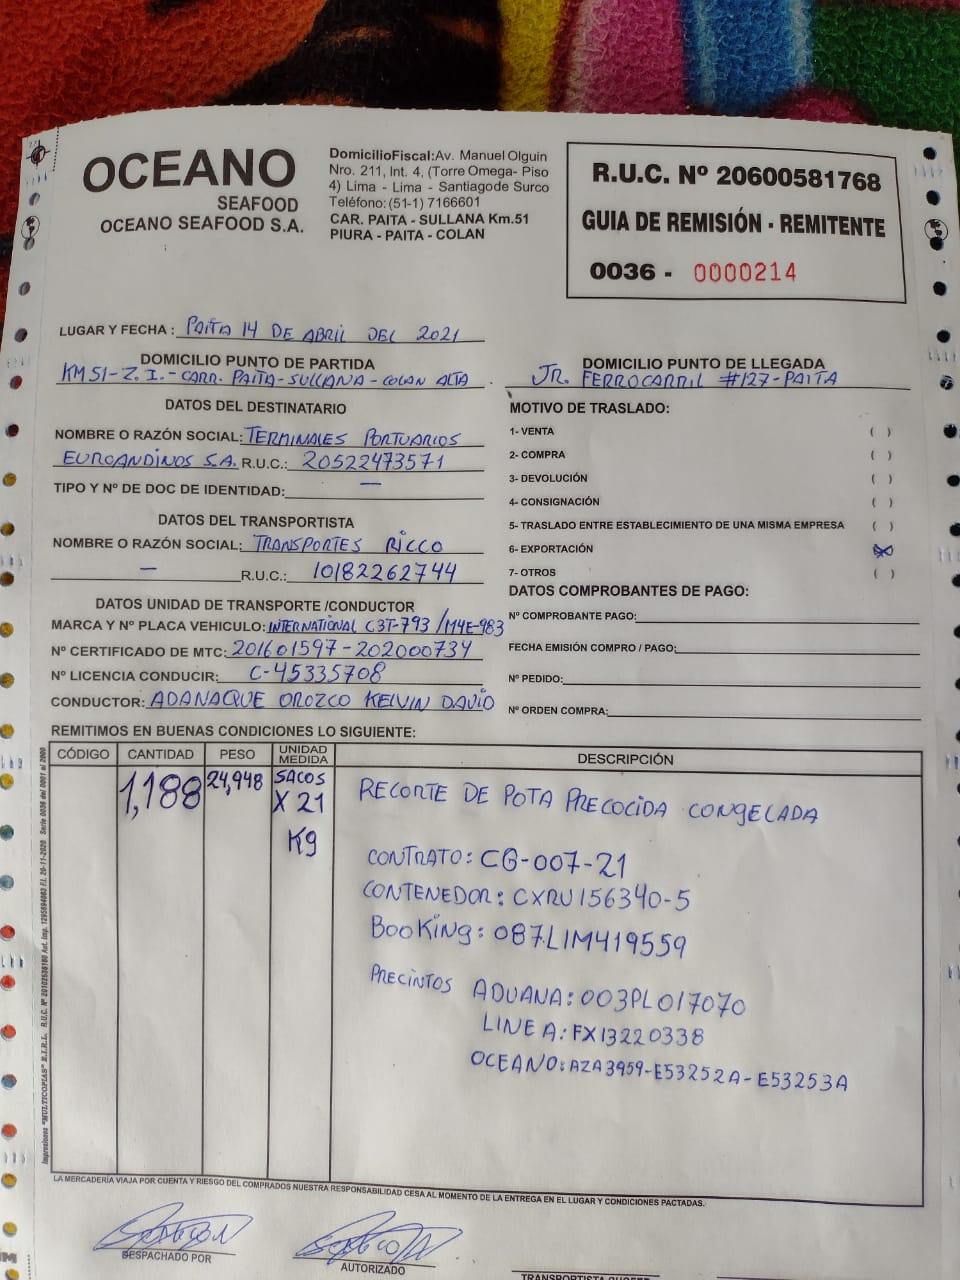 OCEANO
SEAFOOD
OCEANO SEAFOOD S.A.
DomicilioFiscal:Av. Manuel Olguin
Nro. 211, Int. 4, (Torre Omega- Piso
4) Lima - Lima - Santiago de Surco
Teléfono: (51-1) 7166601
CAR. PAITA - SULLANA Km.51
PIURA - PAITA - COLAN
R.U.C. Nº 20600581768
GUIA DE REMISIÓN - REMITENTE
0036 - 0000214
LUGAR Y FECHA : PAITA 14 DE ABRIL DEL 2021
DOMICILIO PUNTO DE PARTIDA
KM 51-Z.I.-CARR. PAITA-SULLANA-COLAN ALTA
DOMICILIO PUNTO DE LLEGADA
JR. FERROCARRIL #127-PAITA
DATOS DEL DESTINATARIO
NOMBRE O RAZÓN SOCIAL: TERMINALES PORTUARIOS
EUROANDINOS S.A. R.U.C.: 20522473571
TIPO Y Nº DE DOC DE IDENTIDAD: —
DATOS DEL TRANSPORTISTA
NOMBRE O RAZÓN SOCIAL: TRANSPORTES RICCO
— R.U.C.: 10182262744
DATOS UNIDAD DE TRANSPORTE /CONDUCTOR
MARCA Y Nº PLACA VEHICULO: INTERNATIONAL C3T-793 /M4E-983
Nº CERTIFICADO DE MTC: 201601597-202000734
Nº LICENCIA CONDUCIR: C-45335708
CONDUCTOR: ADANAQUE OROZCO KELVIN DAVID
MOTIVO DE TRASLADO:
1- VENTA ( )
2- COMPRA ( )
3- DEVOLUCIÓN ( )
4- CONSIGNACIÓN ( )
5- TRASLADO ENTRE ESTABLECIMIENTO DE UNA MISMA EMPRESA ( )
6- EXPORTACIÓN (X)
7- OTROS ( )
DATOS COMPROBANTES DE PAGO:
Nº COMPROBANTE PAGO:
FECHA EMISIÓN COMPRO / PAGO:
Nº PEDIDO:
Nº ORDEN COMPRA:
REMITIMOS EN BUENAS CONDICIONES LO SIGUIENTE:
CÓDIGO CANTIDAD PESO UNIDAD MEDIDA DESCRIPCIÓN
1,188 24,948 SACOS
X 21
Kg
RECORTE DE POTA PRECOCIDA CONGELADA
CONTRATO: CG-007-21
CONTENEDOR: CXRU156340-5
BOOKING: 087LIM419559
PRECINTOS ADUANA: 003PL017070
LINEA: FX13220338
OCEANO: AZA3959-E53252A-E53253A
LA MERCADERÍA VIAJA POR CUENTA Y RIESGO DEL COMPRADOS NUESTRA RESPONSABILIDAD CESA AL MOMENTO DE LA ENTREGA EN EL LUGAR Y CONDICIONES PACTADAS.
DESPACHADO POR
AUTORIZADO